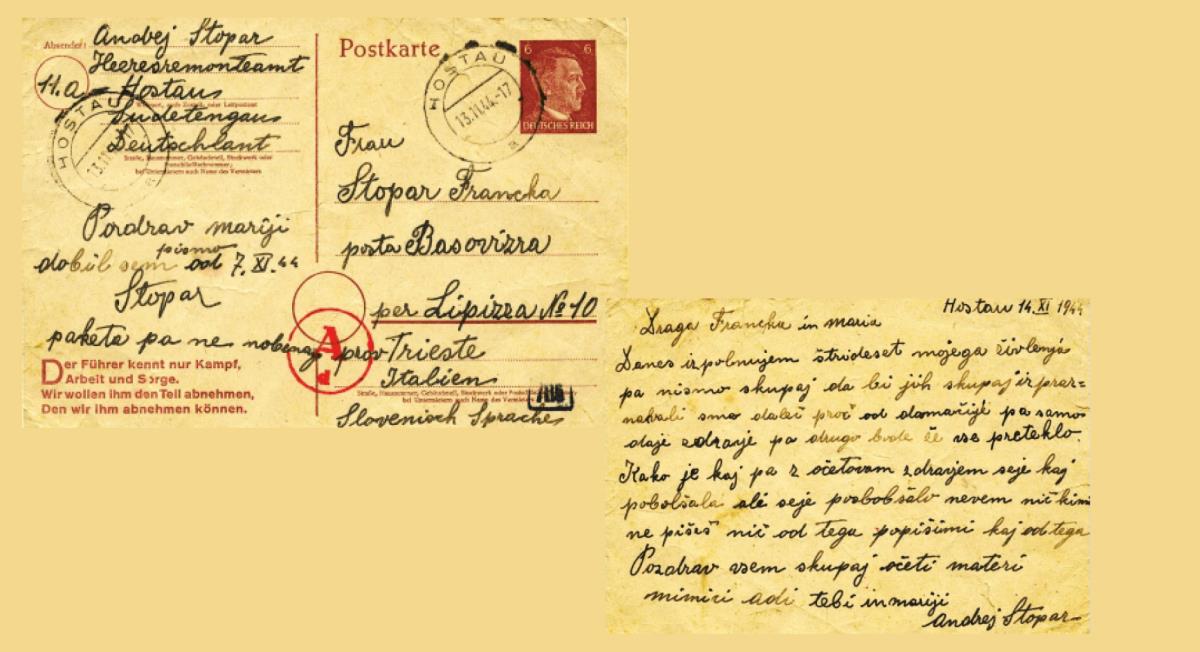 Absender:
Andrej Stopar
Heeresremonteamt
11.a Hostau
Sudetengau
Deutschlant
Straße, Hausnummer, Gebäudeteil, Stockwerk oder
bei Untermietern auch Name des Vermieters
HOSTAU
13.11.
Postkarte
HOSTAU
13.11.44.-17
6 6
DEUTSCHES REICH
Pozdrav mariji
pismo
dobil sem od 7. XI. 44
Stopar
paketa pa ne nobenag
Der Führer kennt nur Kampf,
Arbeit und Sorge.
Wir wollen ihm den Teil abnehmen,
Den wir ihm abnehmen können.
A
d
Frau
Stopar Francka
posta Basovizza
per Lipizza No 10
prov Trieste
Italien
Straße, Hausnummer, Gebäudeteil, Stockwerk oder
bei Untermietern auch Name des
Slovenisch Sprache
Hostau 14. XI 1944
Draga Francka in maria
Danes izpolnujem štrideset mojega živlenja
pa nismo skupaj da bi jih skupaj izpraz=
novali smo daleč proč od domačije pa samo
daje zdravje pa drugo bode že vse preteklo.
Kako je kaj pa z očetovam zdravjem seje kaj
pobolšala ali seje posbobšalo nevem nič kimi
ne pišeš nič od tega popišimi kaj od tega
Pozdrav vsem skupaj očeti materi
mimici adi tebi in mariji
Andrej Stopar